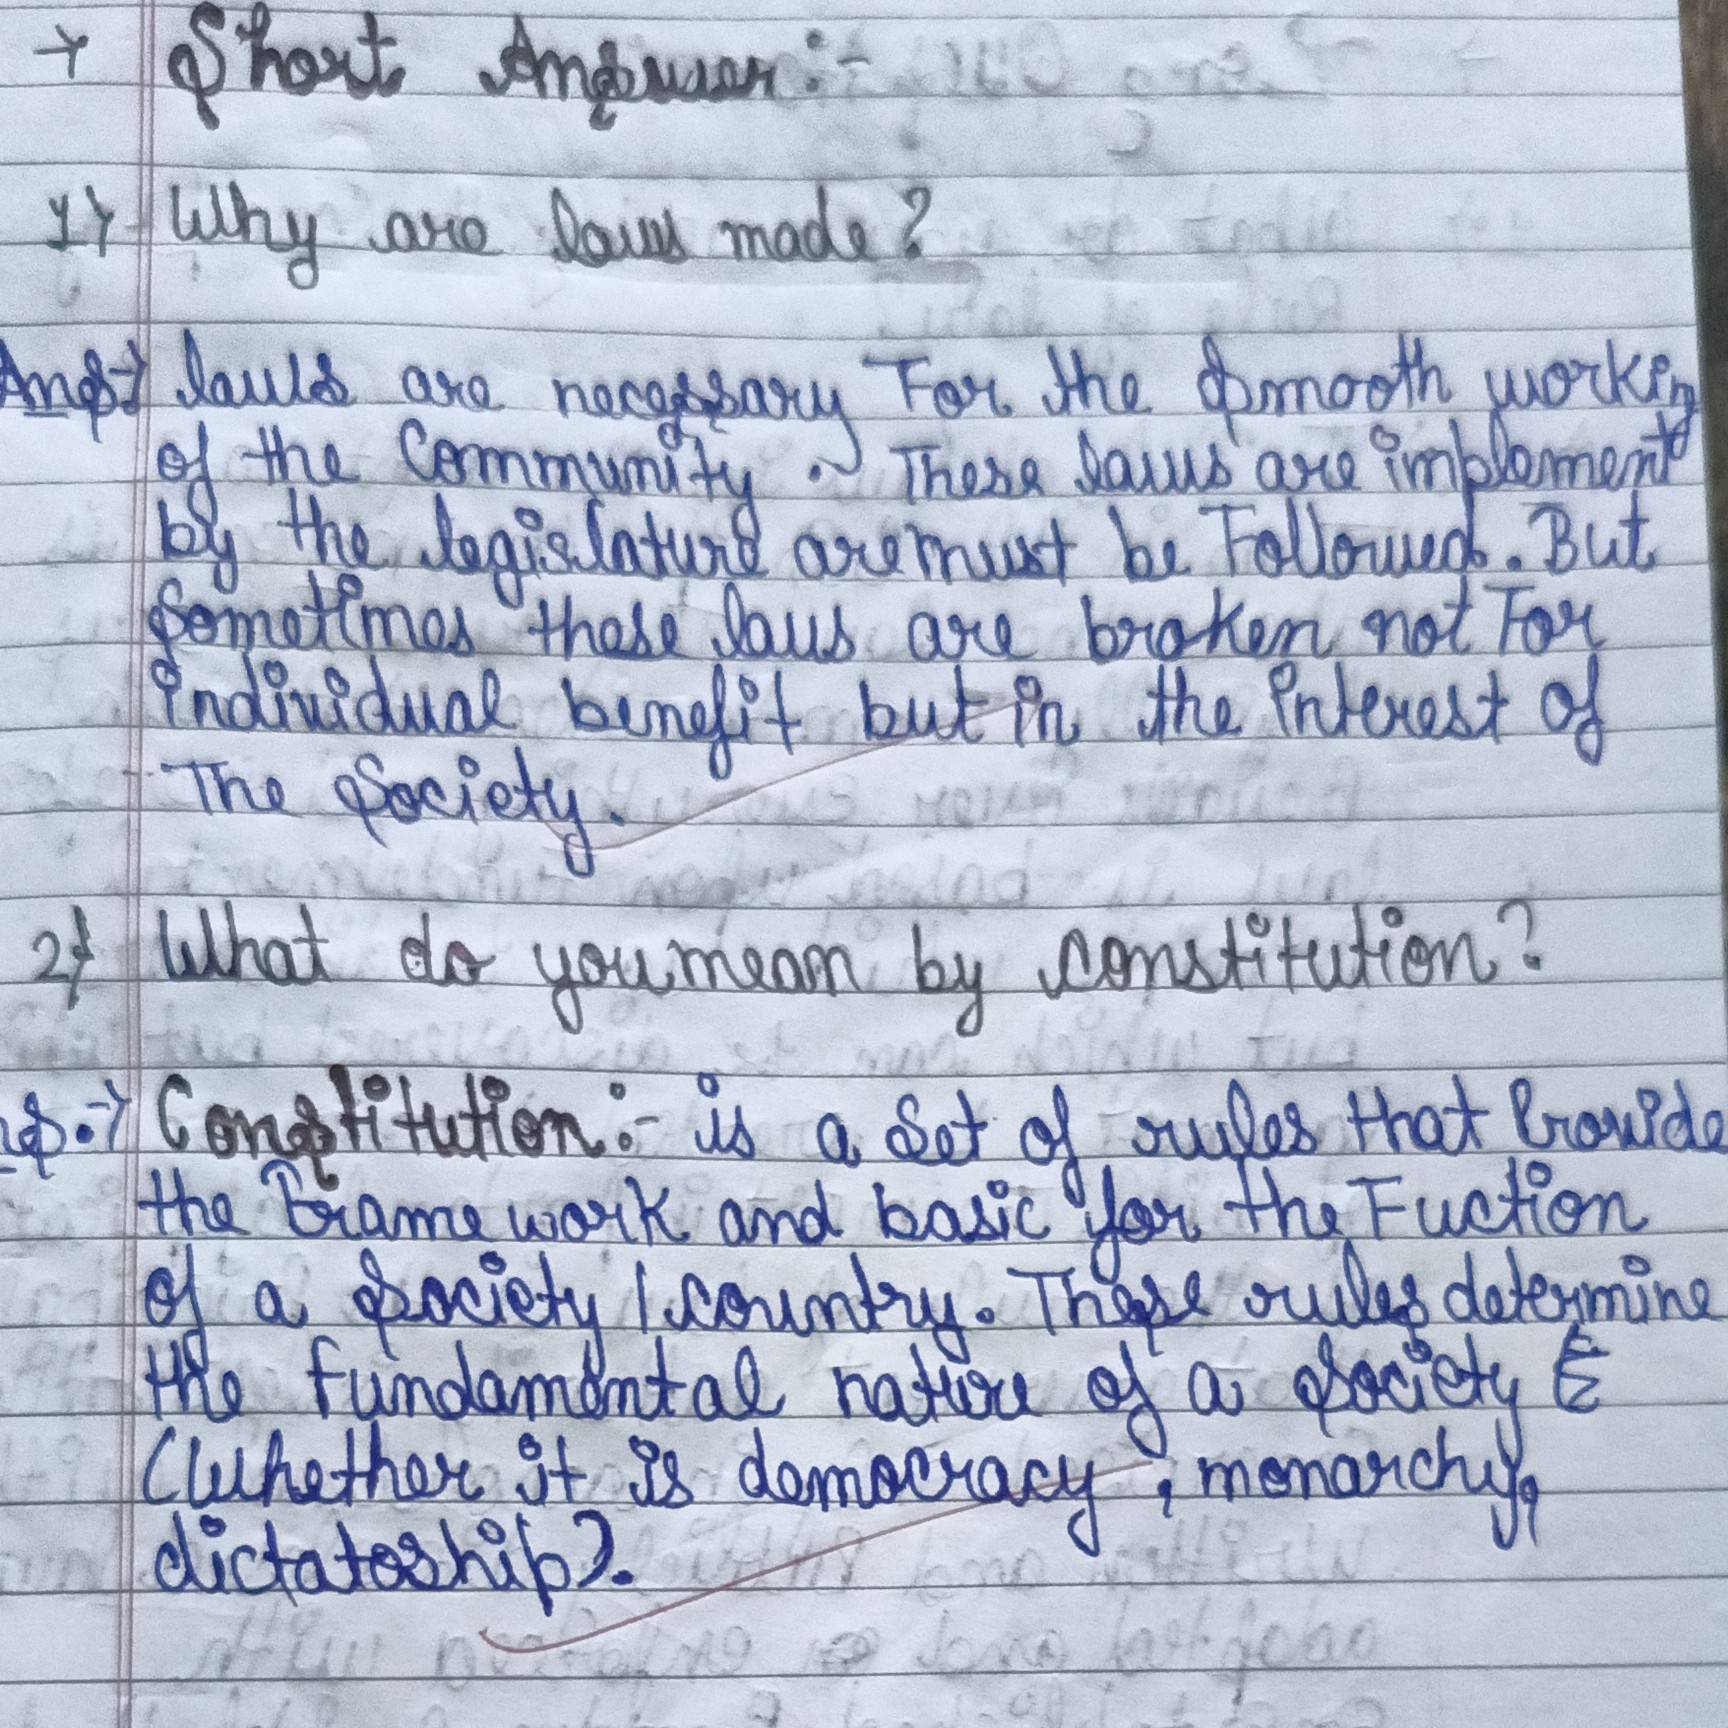 → Short Answer:-
1) Why are laws made?
Ans→ laws are necessary For the smooth working
of the Community. These laws are implement
by the legislature are must be Followed. But
Sometimes these laws are broken not For
individual benefit but in the interest of
The Society.
2) What do you mean by constitution?
ns.→ Constitution:- is a set of rules that Provide
the Frame work and basic for the Fuction
of a society / country. These rules determine
the fundamental nature of a society &
(whether it is democracy, monarchy,
dictatoship).